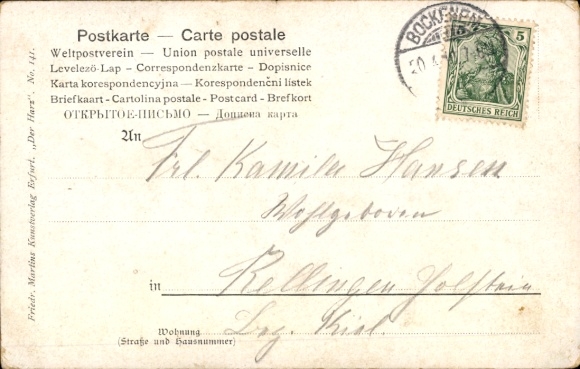 Postkarte — Carte postale
Weltpostverein — Union postale universelle
Levelező-Lap - Correspondenzkarte - Dopisnice
Karta korespondencyjna — Korespondenční lístek
Briefkaart - Cartolina postale - Postcard - Brefkort
ОТКРЫТОЕ-ПИСЬМО — Дописна карта
BOCKENEM
5
DEUTSCHES REICH
An
Frl. Kamila Hansen
Wohlgeboren
in Rellingen Holstein
Bez. Kiel.
Wohnung
(Straße und Hausnummer)
Friedr. Martins Kunstverlag Erfurt. „Der Harz". No. 141.